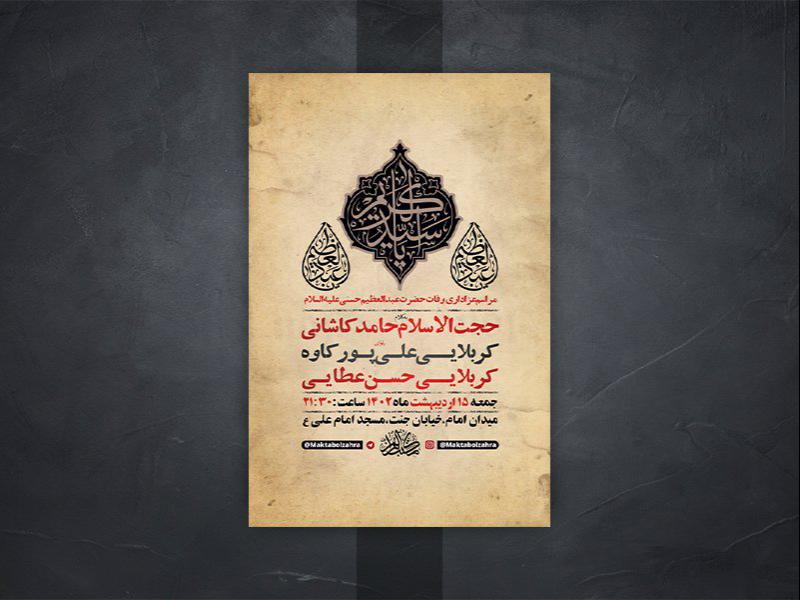 یا سیدالکریم
عبدالعظیم عبدالعظیم
مراسم عزاداری وفات حضرت عبدالعظیم حسنی علیه السلام
حجت الاسلام حامد کاشانی
کربلایی علی پورکاوه
کربلایی حسن عطایی
جمعه ۱۵ اردیبهشت ماه ۱۴۰۲ ساعت: ۲۱:۳۰
میدان امام، خیابان جنت، مسجد امام علی ع
@Maktabolzahra @Maktabolzahra